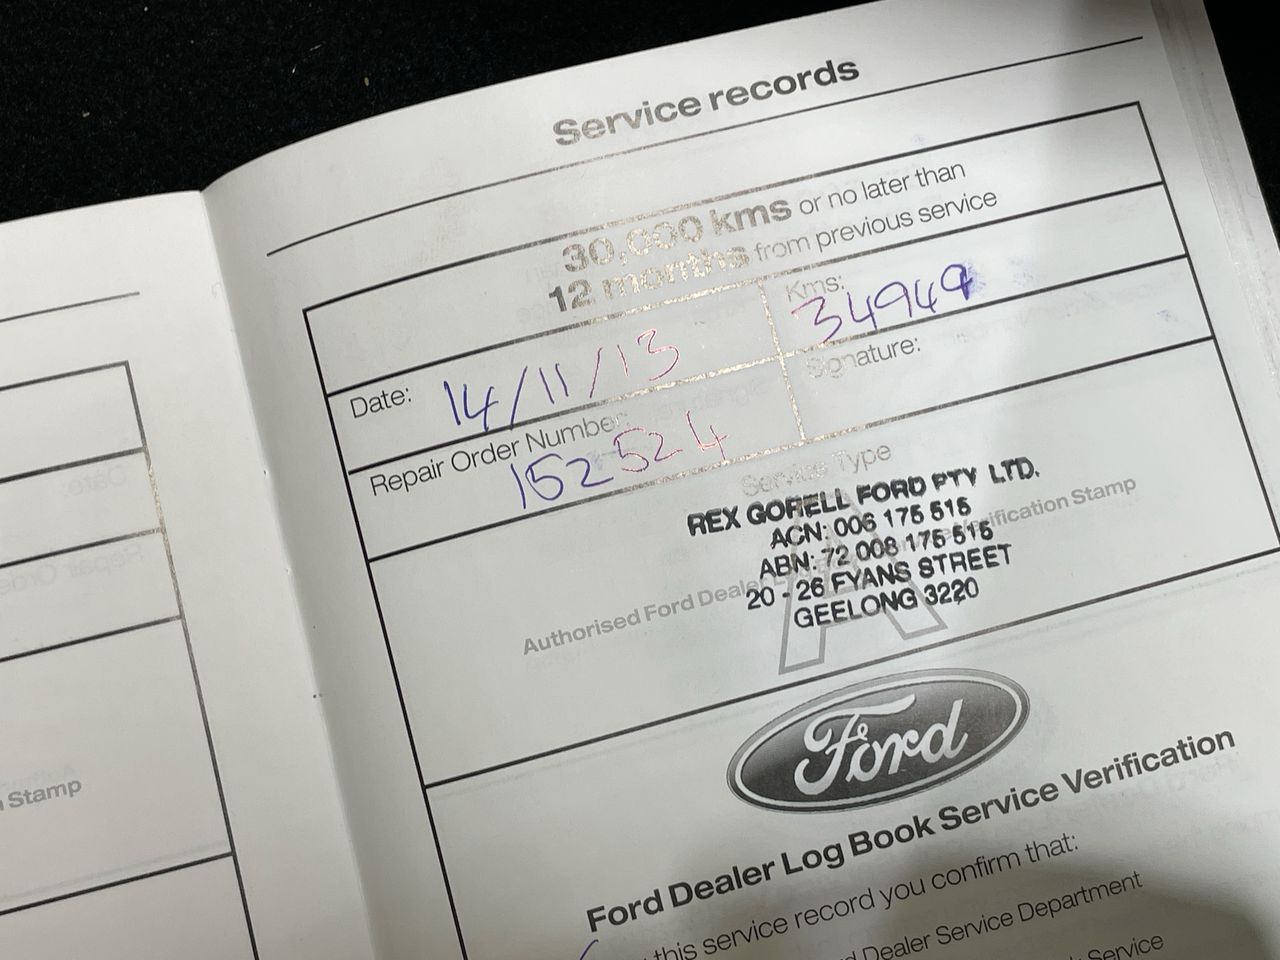 Service records
30,000 kms or no later than
12 months from previous service
Date: 14/11/13
Kms: 34949
Repair Order Number: 152524
Signature:
Service Type
A
REX GORELL FORD PTY LTD.
ACN: 006 175 515
ABN: 72 006 175 515
20 - 26 FYANS STREET
GEELONG 3220
Authorised Ford Dealer Verification Stamp
Ford
Ford Dealer Log Book Service Verification
this service record you confirm that:
Dealer Service Department
Service
Stamp